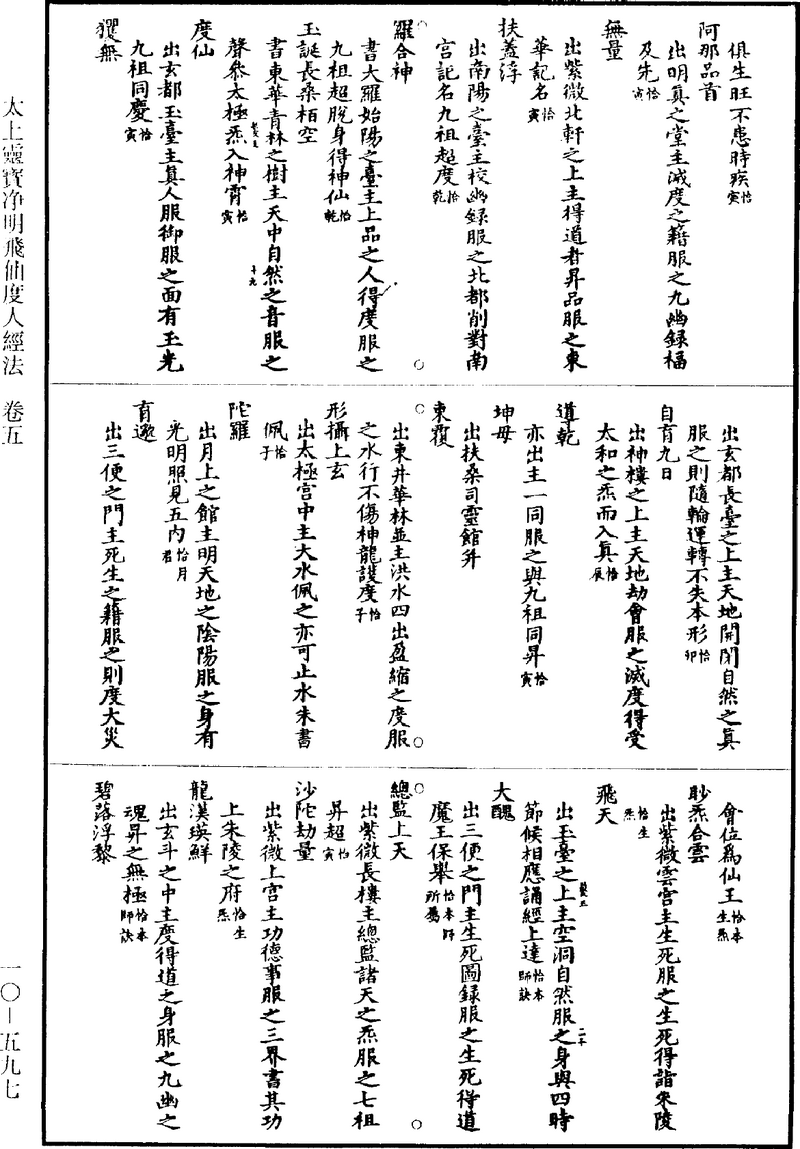 俱生旺不患時疾恰寅
阿那品首
出明真之堂主滅度之籍服之九幽錄福
及先恰寅
無量
出紫微北軒之上主得道者昇品服之東
華記名恰寅
扶蓋浮
出南陽之臺主校幽錄服之北都削對南
宮記名九祖超度恰乾
羅合神
書大羅始陽之臺主上品之人得度服之
九祖超脫身得神仙恰乾
玉誕長桑栢空
書東華青林之樹主天中自然之音服之
十九
聲叅太極炁入神霄恰寅
度仙
出玄都玉臺主真人服御服之面有玉光
九祖同慶恰寅
玃無
出玄都長臺之上主天地開閉自然之真
服之則隨輪運轉不失本形恰卯
自育九日
出神樓之上主天地劫會服之滅度得受
太和之炁而入真恰辰
導乾
亦出主一同服之與九祖同昇恰寅
坤母
出扶桑司靈館箓
東覆
出東井華林並主洪水四出盈縮之度服
之水行不傷神龍護度恰子
形攝上玄
出太極宮中主大水佩之亦可止水朱書
佩恰子
陀羅
出月上之館主明天地之陰陽服之身有
光明照見五內恰月君
育邈
出三便之門主死生之籍服之則度大災
會位爲仙王恰本生炁
眇炁合雲
出紫微雲宮主生死服之生死得詣朱陵
恰生炁
飛天
出玉臺之上主空洞自然服之身與四時
二十
節候相應誦經上達恰本師訣
大醜
出三便之門主生死圖錄服之生死得道
魔王保舉恰本師所屬
總監上天
出紫微長樓主總監諸天之炁服之七祖
昇超恰寅
沙陀劫量
出紫微上宮主功德事服之三界書其功
上朱陵之府恰生炁
龍漢瑛鮮
出玄斗之中主度得道之身服之九幽之
魂昇之無極恰本師訣
碧落浮黎
太上靈寶淨明飛仙度人經法 卷五
一〇—五九七